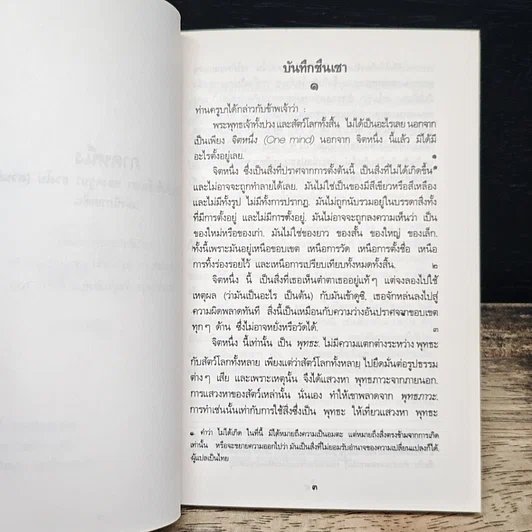 บันทึกชึนเชา
๑
ท่านครูบาได้กล่าวกับข้าพเจ้าว่า :
พระพุทธเจ้าทั้งปวง และสัตว์โลกทั้งสิ้น ไม่ได้เป็นอะไรเลย นอกจาก
เป็นเพียง จิตหนึ่ง (One mind) นอกจาก จิตหนึ่ง นี้แล้ว มิได้มี
อะไรตั้งอยู่เลย. ๑
จิตหนึ่ง ซึ่งเป็นสิ่งที่ปราศจากการตั้งต้นนี้ เป็นสิ่งที่มิได้เกิดขึ้น๑
และไม่อาจจะถูกทำลายได้เลย. มันไม่ใช่เป็นของมีสีเขียวหรือสีเหลือง
และไม่มีทั้งรูป ไม่มีทั้งการปรากฏ. มันไม่ถูกนับรวมอยู่ในบรรดาสิ่งทั้ง
ที่มีการตั้งอยู่ และไม่มีการตั้งอยู่. มันไม่อาจจะถูกลงความเห็นว่า เป็น
ของใหม่หรือของเก่า. มันไม่ใช่ของยาว ของสั้น ของใหญ่ ของเล็ก.
ทั้งนี้เพราะมันอยู่เหนือขอบเขต เหนือการวัด เหนือการตั้งชื่อ เหนือ
การทิ้งร่องรอยไว้ และเหนือการเปรียบเทียบทั้งหมดทั้งสิ้น. ๒
จิตหนึ่ง นี้ เป็นสิ่งที่เธอเห็นตำตาเธออยู่แท้ ๆ แต่จงลองไปใช้
เหตุผล (ว่ามันเป็นอะไร เป็นต้น) กับมันเข้าดูซิ, เธอจักหล่นลงไปสู่
ความผิดพลาดทันที สิ่งนี้เป็นเหมือนกับความว่างอันปราศจากขอบเขต
ทุก ๆ ด้าน ซึ่งไม่อาจหยั่งหรือวัดได้. ๓
จิตหนึ่ง นี้เท่านั้น เป็น พุทธะ. ไม่มีความแตกต่างระหว่าง พุทธะ
กับสัตว์โลกทั้งหลาย เพียงแต่ว่าสัตว์โลกทั้งหลาย ไปยึดมั่นต่อรูปธรรม
ต่าง ๆ เสีย และเพราะเหตุนั้น จึงได้แสวงหา พุทธภาวะจากภายนอก.
การแสวงหาของสัตว์เหล่านั้น นั่นเอง ทำให้เขาพลาดจาก พุทธภาวะ.
การทำเช่นนั้นเท่ากับการใช้สิ่งซึ่งเป็น พุทธะ ให้เที่ยวแสวงหา พุทธะ
๑. คำว่า ไม่ได้เกิด ในที่นี้ มิได้หมายถึงความเป็นอมตะ แต่หมายถึงสิ่งตรงข้ามจากการเกิด
เท่านั้น หรือจะขยายความออกไปว่า มันเป็นสิ่งที่ไม่ยอมรับอำนาจของความเปลี่ยนแปลงก็ได้.
-ผู้แปลเป็นไทย
๓